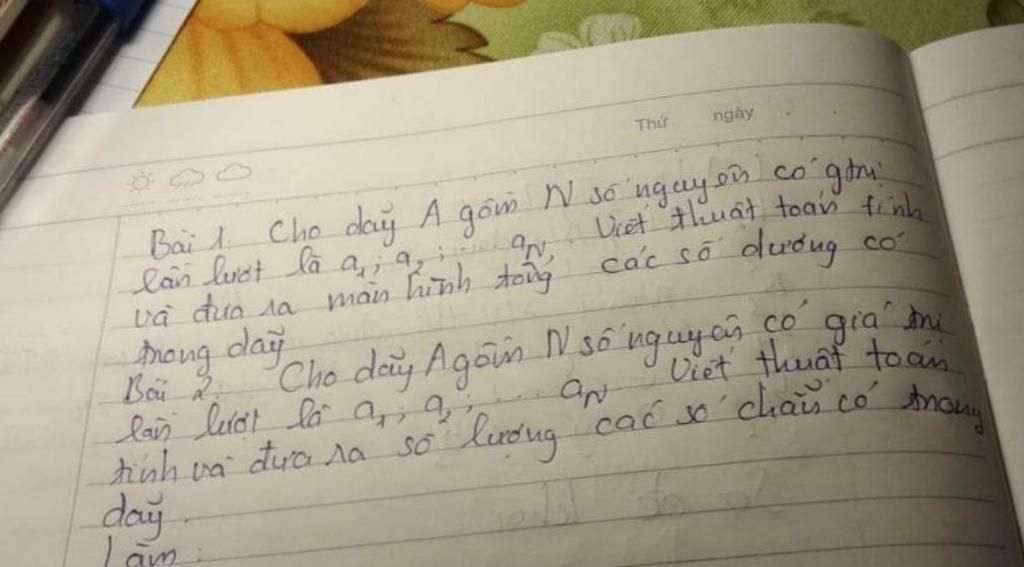 Thứ ngày
Bài 1. Cho dãy A gồm N số nguyên có gtrị
lần lượt là a₁; a₂; .... aN. Viết thuật toán tính
và đưa ra màn hình tổng các số dương có
trong dãy
Bài 2: Cho dãy A gồm N số nguyên có giá trị
lần lượt là a₁; a₂; ... aN Viết thuật toán
tính và đưa ra số lượng các số chẵn có trong
dãy.
Làm: